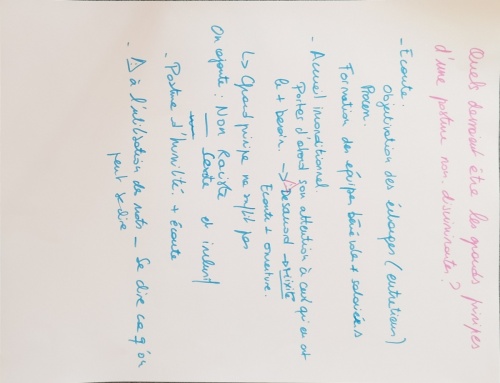 Quels devraient être les grands pinipes
d'une posture non-discriminante ?
- Écoute.
Objectivation des échanges (entretiens)
Formation des équipes bénévole + salarié.s
- Accueil inconditionnel
Portes d'abord son attention à ceux qui en ont
le + besoin. → Désaccord → priorité
Écoute + ouverture.
↳ Quand pinipe ne suffit pas
On rajoute : Non Raciste
et inclusif
- Posture d'humilité + Écoute
- ⚠ à l'utilisation de mots - Se dire ce q'on
peut se dire